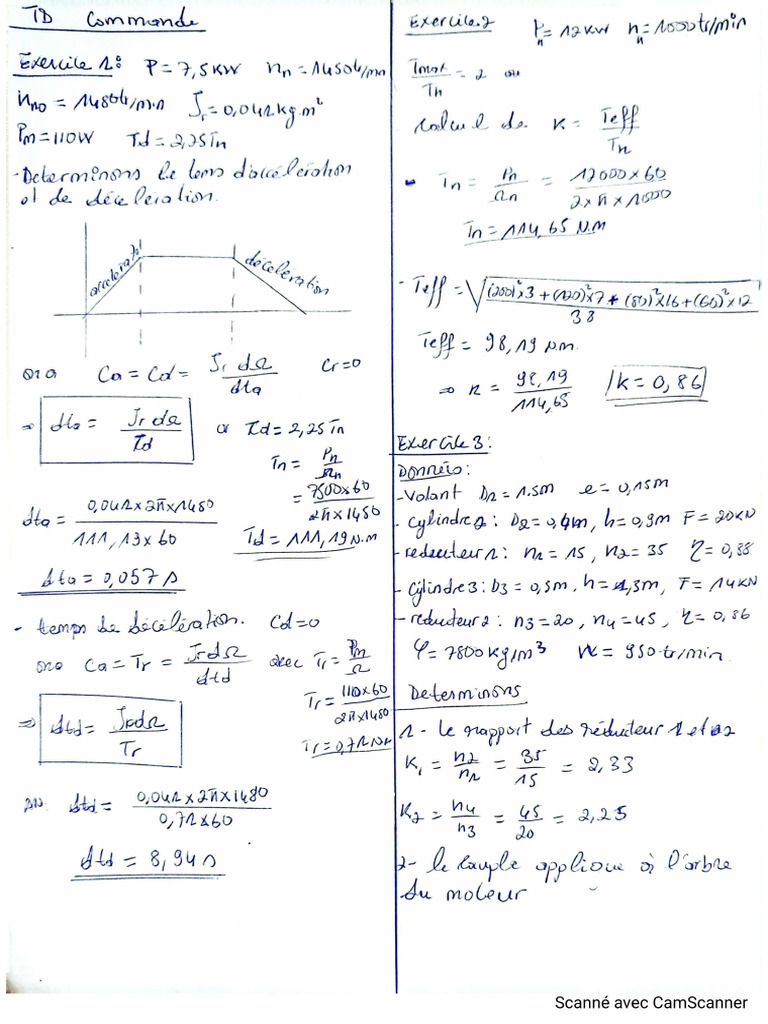 TD Commande
Exercice 1: P = 7,5KW nn = 1450tr/mn
nn0 = 1480tr/min Jr = 0,041kg.m²
Pm = 110W Td = 2,25Tn
- Determinons le tems d'accélération
et de décélération.
acceleratn
décéleration
ona Ca = Cd = Jr dΩ / dta Cr = 0
⇒ dta = Jr dΩ / Td a Td = 2,25 Tn
Tn = Pn / Ωn
= 7500×60 / 2π×1450
dta = 0,041×2π×1480 / 111,13×60
Td = 111,19 N.m
dta = 0,057 s
- temps de décélération. Cd = 0
ona Ca = Tr = Jr dΩ / dtd avec Tr = Pm / Ω
Tr = 110×60 / 2π×1480
⇒ dtd = Jr dΩ / Tr
Tr = 0,71 N.m
AN: dtd = 0,041×2π×1480 / 0,71×60
dtd = 8,94 s
Exercice.2 Pn = 12KW nn = 1000tr/min
Tmax / Tn = 2 ou
calcul de K = Teff / Tn
- Tn = Pn / Ωn = 12000×60 / 2×π×1000
Tn = 114,65 N.M
- Teff = √((200)²×3 + (120)²×7 + (80)²×16 + (60)²×12 / 38)
Teff = 98,19 N.m.
⇒ K = 98,19 / 114,65 K = 0,86
Exercice 3:
Données:
- Volant D1 = 1.5m e = 0,15m
- Cylindre 2: D2 = 0,4m, h = 0,9m F = 20KN
- reducteur 1: n1 = 15, n2 = 35 η = 0,88
- Cylindre 3: D3 = 0,5m, h = 1,3m, F = 14KN
- reducteur 2: n3 = 20, n4 = 45, η = 0,86
φ = 7800kg/m³ N = 950tr/min.
Determinons
1 - le rapport des réducteur 1 et 2
K1 = n2 / n1 = 35 / 15 = 2,33
K2 = n4 / n3 = 45 / 20 = 2,25
2 - le couple applique à l'arbre
du moteur
Scanné avec CamScanner